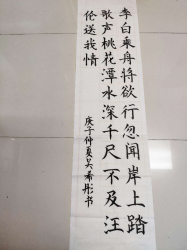 李白乘舟将欲行忽闻岸上踏
歌声桃花潭水深千尺不及汪
伦送我情
庚子仲夏吴希彤书